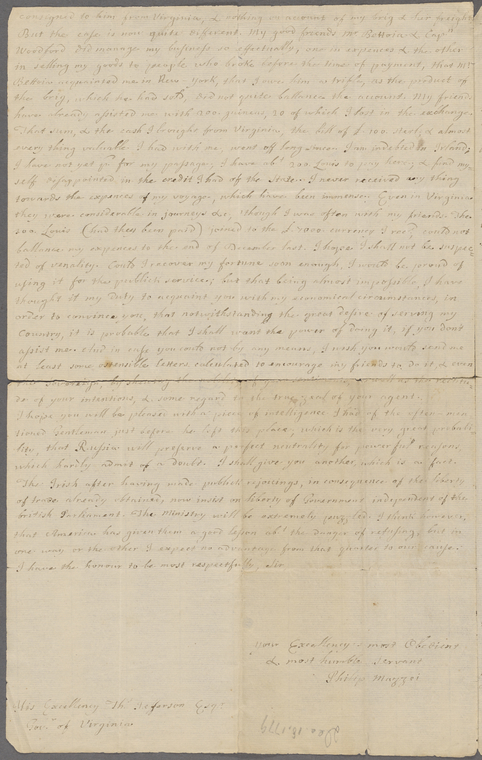 consigned to him from Virginia, & nothing on account of my brig & her freight.
But the case is now quite different. My good friends Mr. Bettoia & Capn.
Woodford did manage my business so effectually, one in expences & the other
in selling my goods to people who broke before the time of payment, that Mr.
Bettoia acquainted me in New-York, that I owe him a trifle, as the product of
the brig, which he had sold, did not quite ballance the account. My friends
have already assisted me with 200. guineas, 20 of which I lost in the exchange.
That sum, & the cash I brought from Virginia, the bill of £.100. sterl. & almost
every thing valuable I had with me, went off long since. I am indebted in Ireland,
I have not yet pd. for my passage, I have abt. 200 Louis to pay here, & find my
self disappointed in the credit I had of the State. I never received any thing
towards the expences of my voyage, which have been immense. Even in Virginia
they were considerable in journeys &c., though I was often with my friends. The
200. Louis (had they been paid) joined to the £.2000 currency I recd. could not
ballance my expences to the end of December last. I hope I shall not be suspec-
ted of venality. Could I recover my fortune soon enough, I would be proud of
using it for the publick service; but that being almost impossible, I have
thought it my duty to acquaint you with my economical circumstances, in
order to convince you, that notwithstanding the great desire of serving my
Country, it is probable that I shall want the power of doing it, if you don't
assist me. And in case you could not by any means, I wish you would send me
at least some ostensible letters calculated to encourage my friends to do it, & even
de of your intentions, & some regard to the true zeal of your agent.
I hope you will be pleased with a piece of intelligence I had of the often-men-
tioned Gentleman just before he left this place, which is the very great probabi-
lity, that Russia will preserve a perfect neutrality for powerful reasons,
which hardly admit of a doubt. I shall give you another, which is a fact.
The Irish after having made publick rejoicings, in consequence of the liberty
of trade already obtained, now insist on liberty of Government independent of the
British Parliament. The Ministry will be extremely puzzled. I think however,
that America has given them a good lesson abt. the danger of refusing; but in
one way or the other I expect an advantage from that quarter to our cause.
I have the honour to be most respectfully, Sir
your Excellency's most Obedient
& most humble Servant
Philip Mazzei
His Excellency Ths. Jefferson Esqr.
Govr. of Virginia